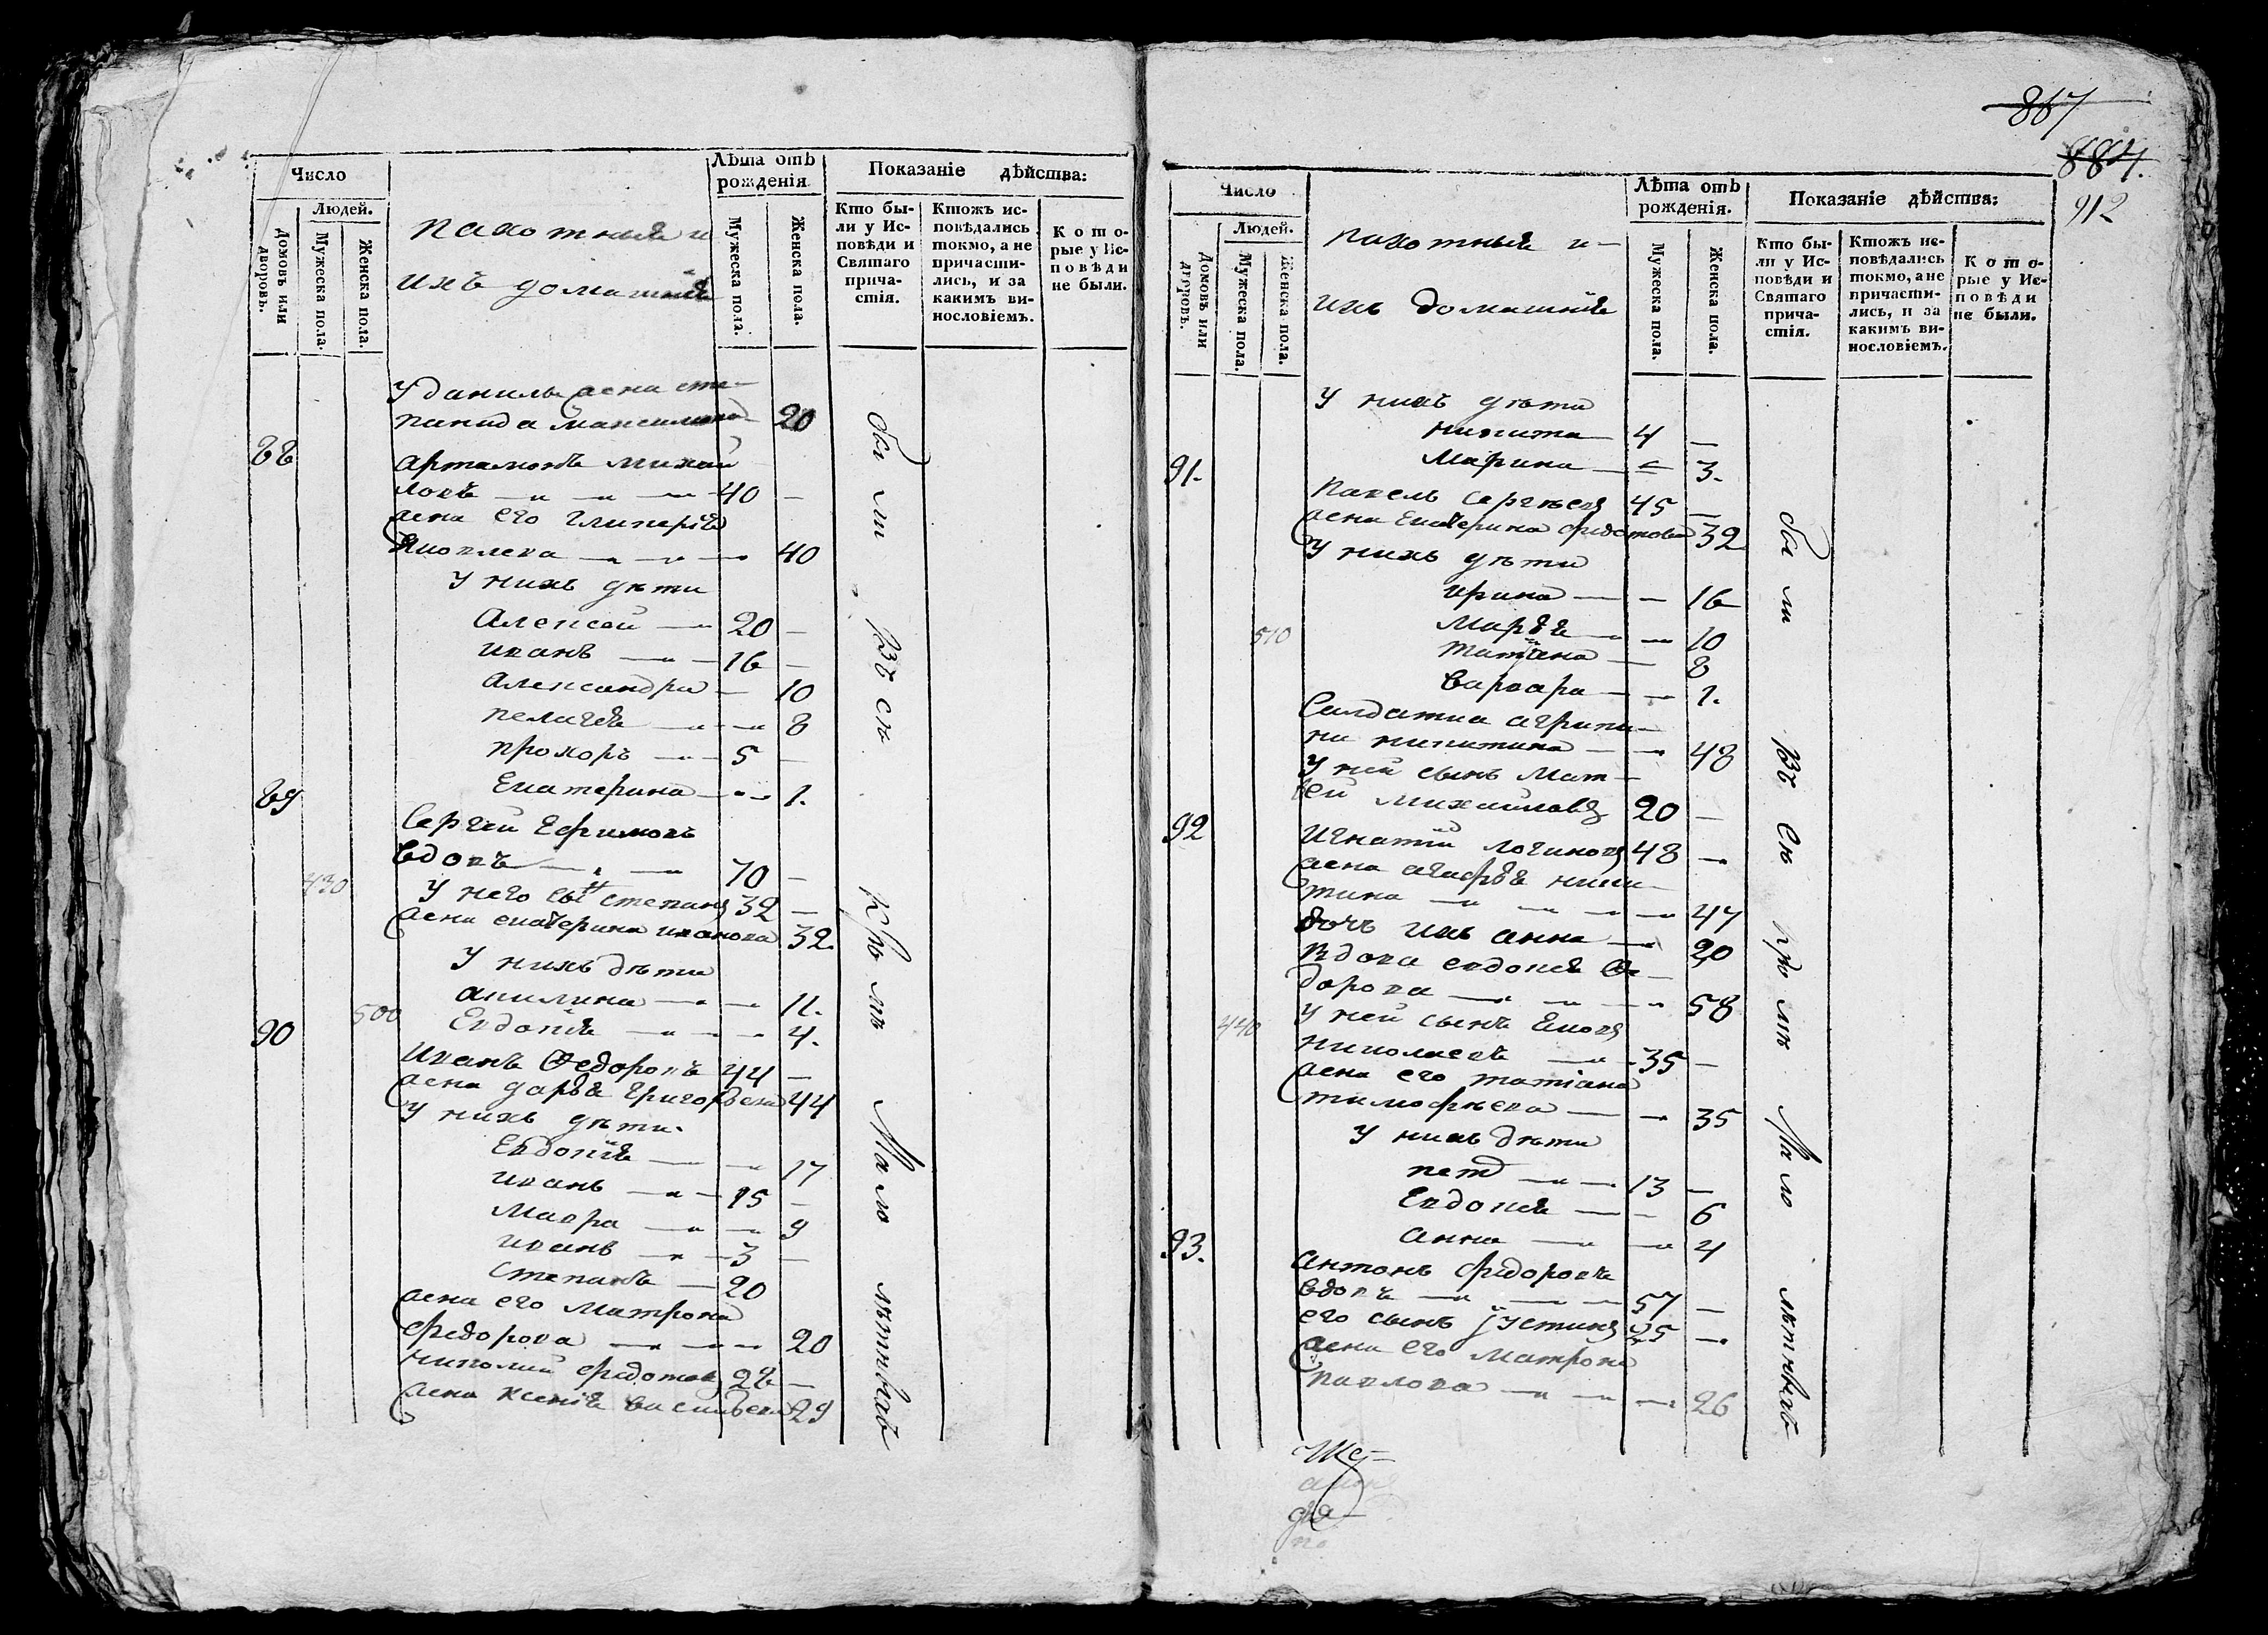 Число
Людей.
Домовъ или дворовъ.
Мужеска пола.
Женска пола.
пахотныя и
ихъ домашнія
Лѣта отъ рожденія
Мужеска пола.
Женска пола.
Показаніе дѣйства:
Кто были у Исповѣди и Святаго причастія.
Ктожъ исповѣдались токмо, а не причастились, и за какимъ винословіемъ.
Которые у Исповѣди не были.
У данилы жена сте-
панида максимова 20
88
артамонъ михай
ловъ 40 —
жена его гликерія
Яковлева 40
У нихъ дѣти
Алексей 20 —
иванъ 16 —
Александра — 10
пелагея 8
прохоръ 5 —
Екатерина 1.
89
Сергей Ефимовъ
вдовъ 70 —
430
У него сынъ степанъ 32 —
жена екатерина иванова 32.
У нихъ дѣти
акилина 11.
500
Евдокія 4.
90
Иванъ Ѳедоровъ 44 —
жена дарья григорьева 44
У нихъ дѣти.
Евдокія 17
иванъ 15 —
Мавра 9
иванъ 3 —
Степанъ 20
жена его матрона
федорова 20
николай федотов 28 —
жена ксенія васильева 29
были всѣ кромѣ малолѣтныхъ
867
884.
912
Число
Людей.
Домовъ или дворовъ.
Мужеска пола.
Женска пола.
пахотныя и
ихъ домашнія
Лѣта отъ рожденія.
Мужеска пола.
Женска пола.
Показаніе дѣйства:
Кто были у Исповѣди и Святаго причастія.
Ктожъ исповѣдались токмо, а не причастились, и за какимъ винословіемъ.
Которые у Исповѣди не были.
У нихъ дѣти
никита 4 —
марина 3.
91.
павелъ сергѣев 45 —
жена екатерина федотова 32
У нихъ дѣти
ирина — 16
510
марья 10
татіана 8
варвара 1.
Салдатка агрипи-
на никитина 48
У ней сынъ мат-
вей михайлов 20 —
92
Игнатій логинов 48 —
жена агафья ники-
тина 47
дочь ихъ анна 20
вдова евдокія Ѳе-
дорова 58
440
У ней сынъ Яков
николаевъ 35 —
жена его татіана
тимофѣева 35
У нихъ дѣти
петр 13 —
Евдокія — 6
анна 4
93.
антонъ федоровъ
вдовъ 57 —
его сынъ іустин 25 —
жена его матрона
павлова 26
были всѣ кромѣ малолѣтныхъ